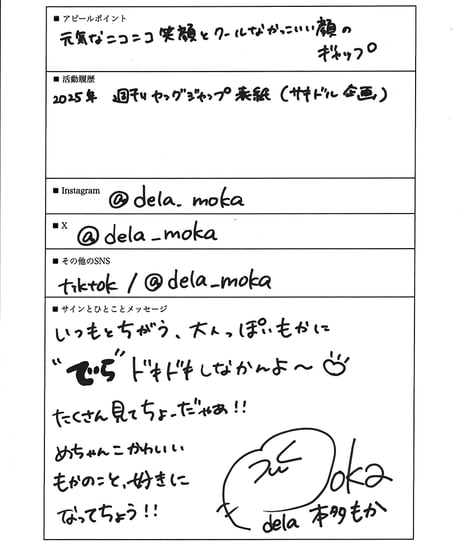 ■ アピールポイント
元気なニコニコ笑顔とクールなかっこいい顔の
ギャップ
■ 活動履歴
2025年 週刊ヤングジャンプ表紙(サキドル企画)
■ Instagram
@dela_moka
■ X
@dela_moka
■ その他のSNS
tiktok / @dela_moka
■ サインとひとことメッセージ
いつもとちがう、大人っぽいもかに
"でら"ドキドキしなかんよ〜
たくさん見てちょーだやぁ!!
めちゃんこかわいい
もかのこと、好きに
なってちょう!!
moka
dela 本多もか